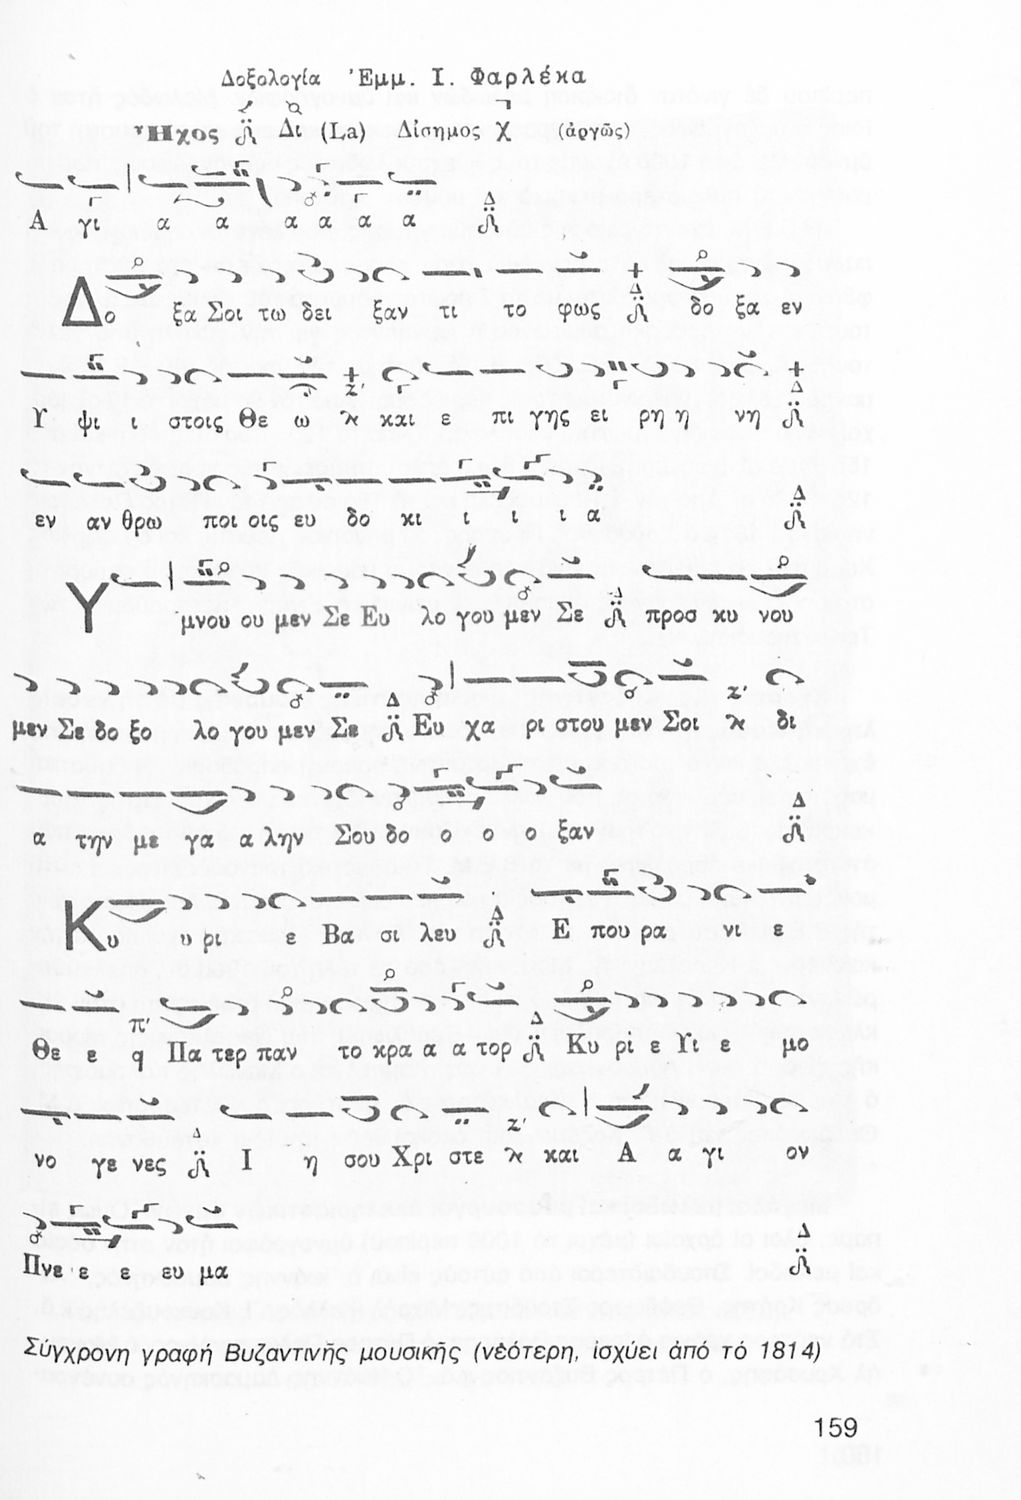 Δοξολογία Ἐμμ. Ι. Φαρλέκα
Ἦχος Δι (La) Δίσημος χ (ἀργῶς)
Α γι α α α α α α Δ
Δο ξα Σοι τω δει ξαν τι το φως Δ δο ξα εν
Υ ψι ι στοις Θε ω ζ' και ε πι γης ει ρη η νη Δ
εν αν θρω ποι οις ευ δο κι ι ι ι α Δ
Υ μνου ου μεν Σε Ευ λο γου μεν Σε Δ προσ κυ νου
μεν Σε δο ξο λο γου μεν Σε Δ Ευ χα ρι στου μεν Σοι ζ' δι
α την με γα α λην Σου δο ο ο ο ξαν Δ
Κυ υ ρι ε Βα σι λευ Δ Ε που ρα νι ε
Θε ε π' q Πα τερ παν το κρα α α τορ Δ Κυ ρι ε Υι ε μο
νο γε νες Δ Ι η σου Χρι στε ζ' και Α α γι ον
Πνε ε ε ε ευ μα Δ
Σύγχρονη γραφή Βυζαντινῆς μουσικῆς (νεότερη, ἰσχύει ἀπό τό 1814)
159